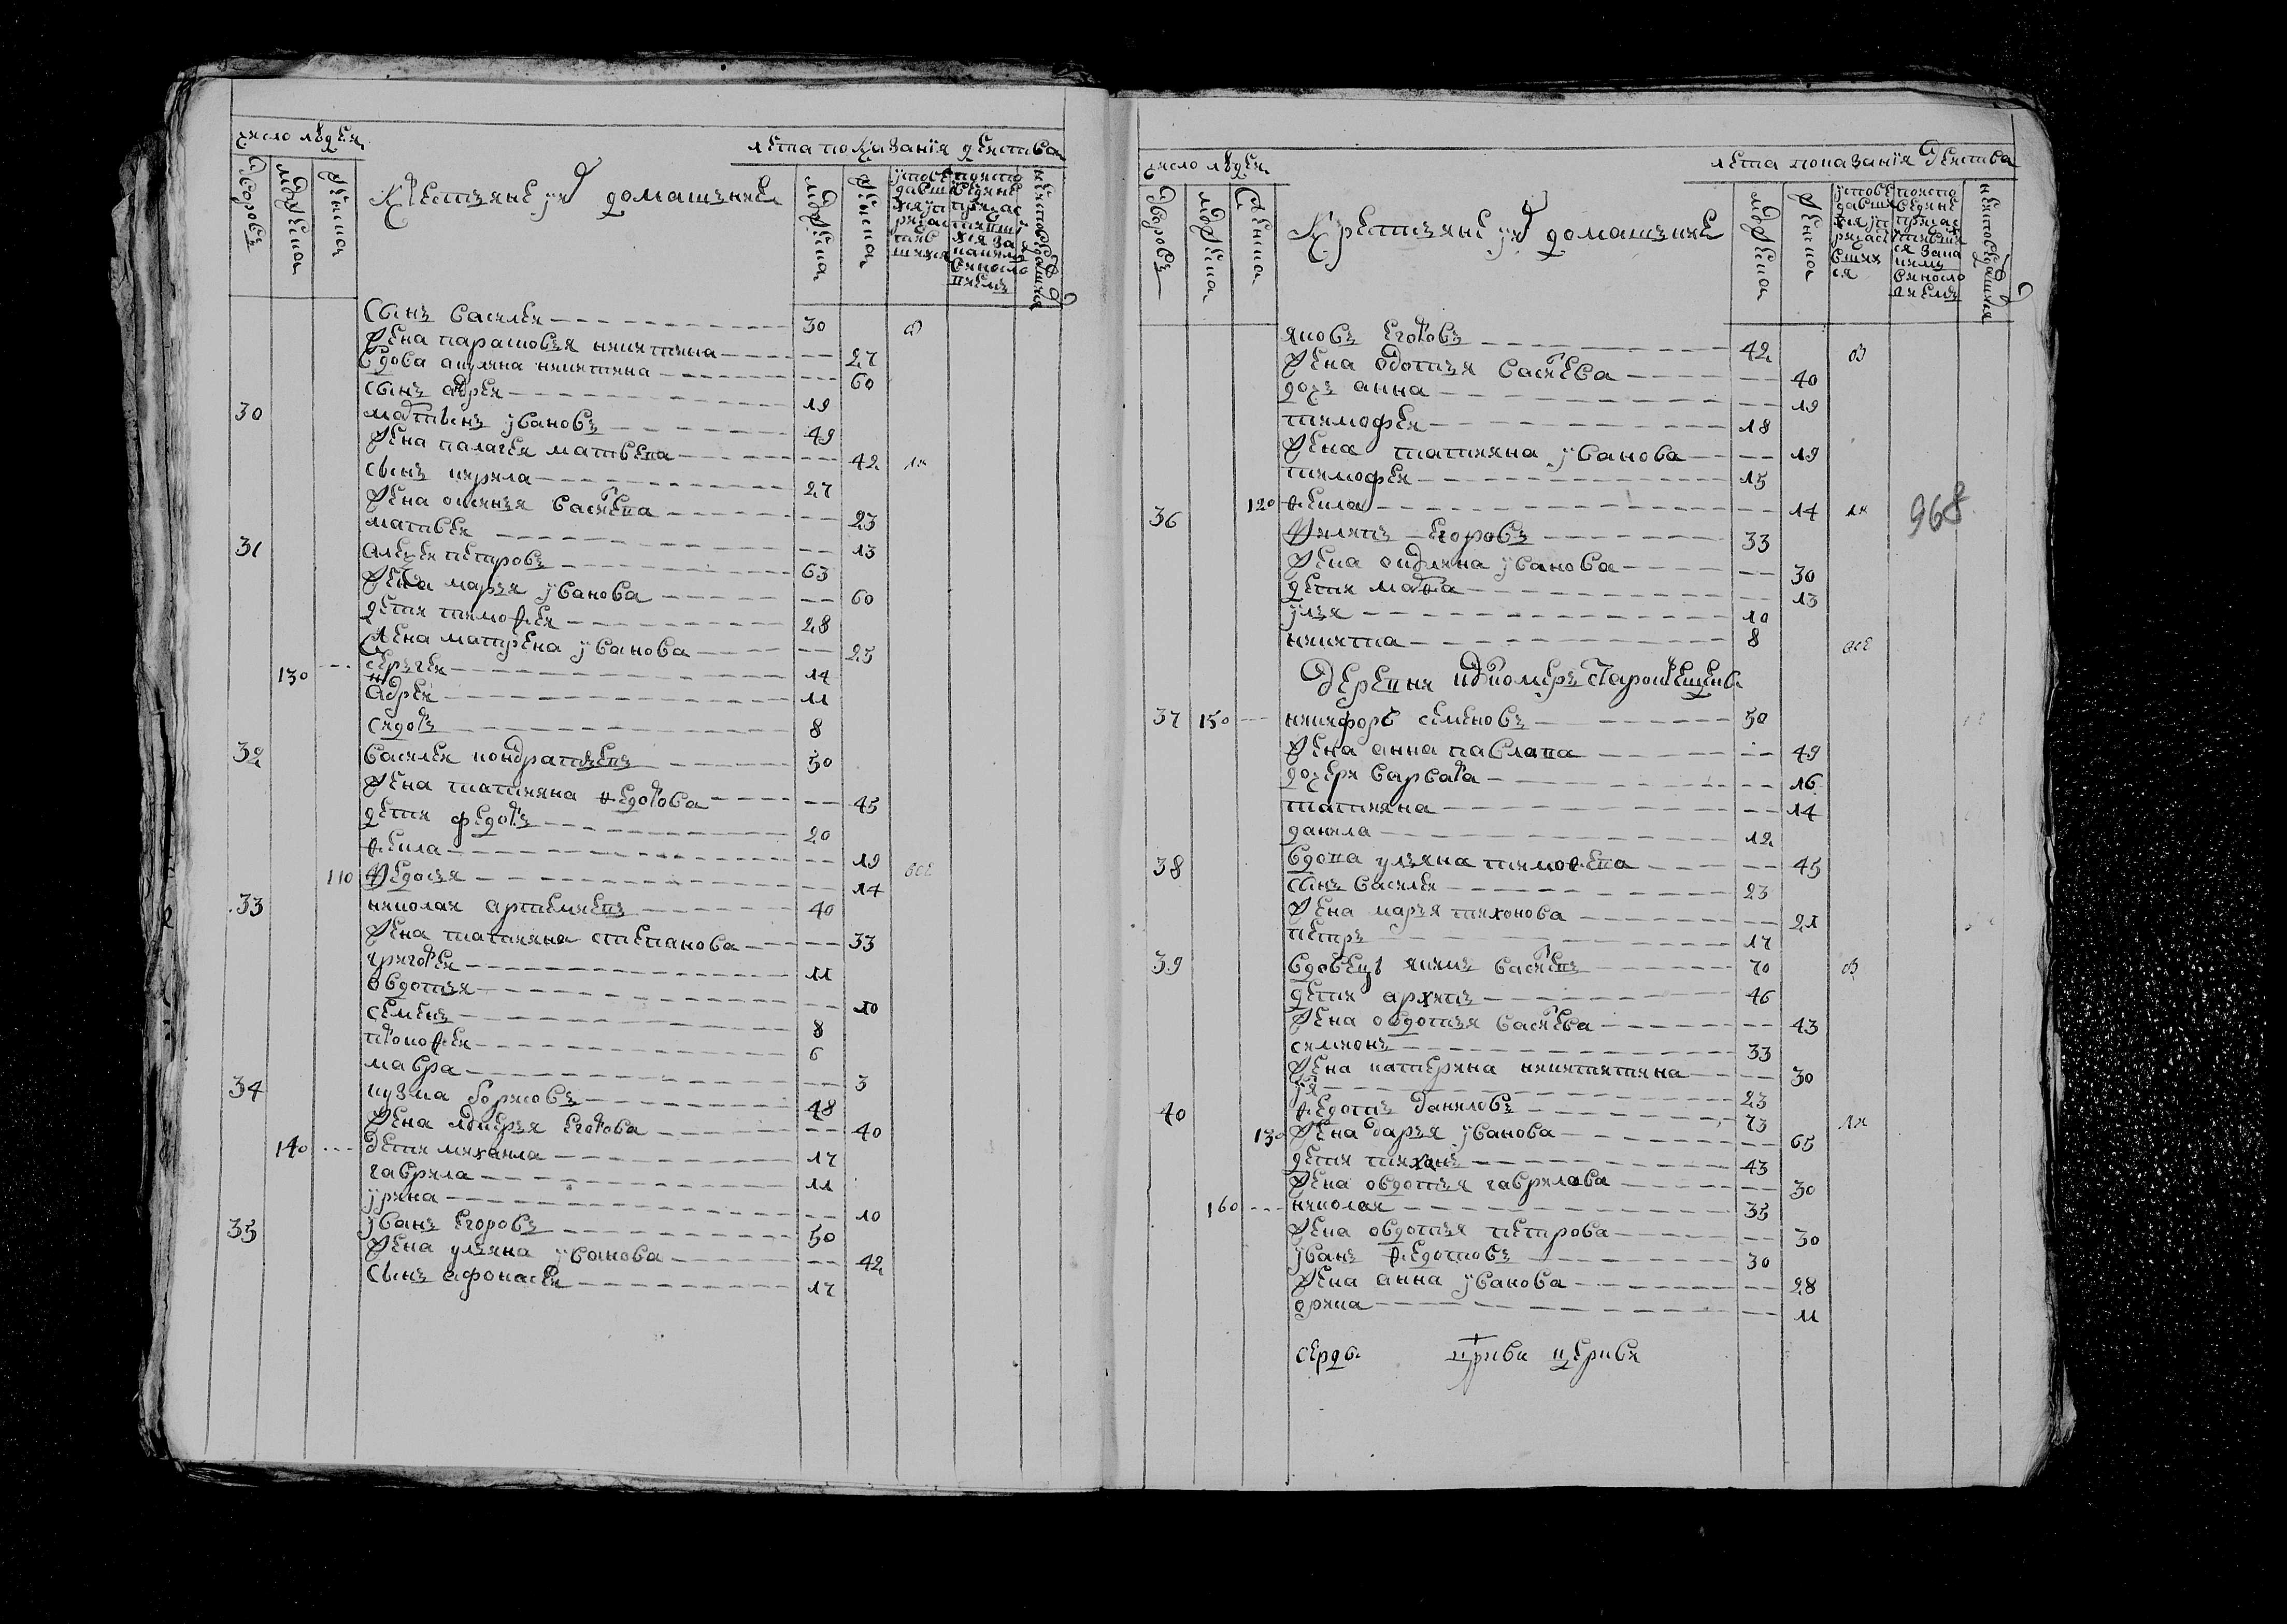 число людей
лета показанія действа
Дворовъ
мужеска
женска
Крестьяне и их домашние
мужеска
женска
сынъ василей 30
жена парасковья никитина 27
вдова акулина никитина 60
сынъ андрей 19
30 матвей ивановъ 49
жена палагея матвеева 42
сынъ кирила 27
жена оксинья васильева 23
матвей 13
31 алексей петровъ 63
жена марья иванова 60
дети тимофей 28
жена матрена иванова 25
130 сергей 14
андрей 11
сидоръ 8
32 василей кондратьевъ 50
жена татияна федорова 45
дети федоръ 20
фекла 19 все
110 федосья 14
33 николай артемьевъ 40
жена татияна степанова 33
григорей 11
овдотья 10
семенъ 8
прокофей 6
мавра 3
34 кузма борисовъ 48
жена лукерья егорова 40
140 дети михаила 17
гаврила 11
ирина 10
35 иванъ егоровъ 50
жена ульяна иванова 42
сынъ афонасей 17
число людей
лета показанія действа
Дворовъ
мужеска
женска
Крестьяне и их домашние
мужеска
женска
яковъ егоровъ 42
жена овдотья васильева 40
дочь анна 19
тимофей 18
жена татияна иванова 19
тимофей 15
120 фекла 14
968
36 филипъ егоровъ 33
жена акулина иванова 30
дети марфа 13
илья 10
никита 8 все
деревня
37 150 никифоръ семеновъ 50
жена анна павлова 49
дочери варвара 16
татияна 14
данила 12
38 вдова ульяна тимофеева 45
сынъ василей 23
жена марья тихонова 21
петръ 17
39 вдовецъ якимъ васильевъ 70
дети архипъ 46
жена овдотья васильева 43
симионъ 33
жена катерина никитична 30
23
40 федотъ даниловъ 73
130 жена дарья иванова 65
дети тихонъ 43
жена овдотья гаврилова 30
160 николай 35
жена овдотья петрова 30
иванъ федотовъ 30
жена анна иванова 28
орина 11
церкви